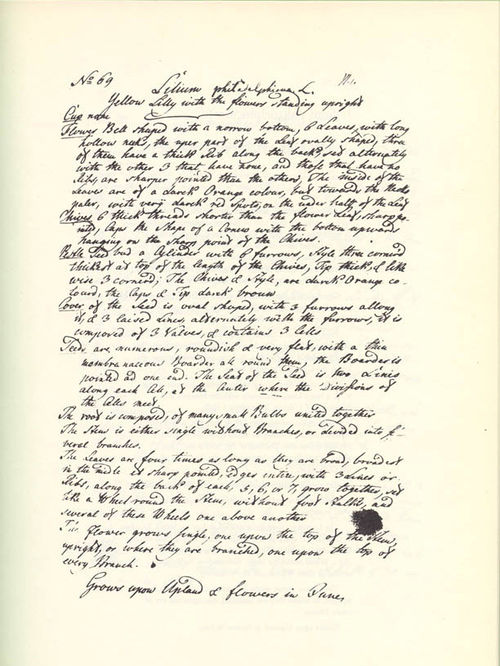 No 69 Lilium philadelphicum L.
Yellow Lilly with the flowers standing upright
Cup none
Flower Bell shaped with a norrow bottom, 6 Leaves, with long
hollow necks, the uper part of the Leaf ovally shaped, three
of them have a thick Rib along the back, set alternately
with the other 3 that have none, and those that have no
Ribs, are sharper pointed than the others, The inside of the
Leaves are of a darck Orange colour, but towards the Necks
paler, with very darck red spots, on the under half of the Leaf
Chives 6 thick threads shorter than the flower Leaf sharp po-
inted, Caps the shape of a Conew with the bottom upwards
hanging on the sharp point of the Chives.
Seed bud a Cylinder with 6 furrows, Style three corned
thickest at top of the length of the Chives, Tip thick, & like
wise 3 corned; The Chives & Style, are darck Orange co-
lourd, the Caps & Tip darck broun
Cover of the Seed is oval shaped, with 3 furrows allong
it, & 3 raised Lines alternately with the furrows, it is
composed of 3 Valves, & contains 3 Cells
Seeds, are numerous, roundish & very flat, with a thin
membranaceous Boarder all round them, the Boarder is
pointed at one end. The Seat of the Seed is two Lines
along each Cell, at the Center where the divisions of
the Cells meet
The root is composed, of many small Bulbs united together
The Stem is either single without Branches, or divided into se-
veral branches.
The Leaves are four times as long as they are broad, broadest
in the midle & sharp pointed, Edges entire, with Veines or
Ribs, along the back of each, 5, 6, or 7, grow together, set
like a Wheel round the Stem, without foot stalks, and
several of these Wheels one above another
The Flower grows single, one upon the top of the Stem,
upright, or where they are branched, one upon the top of
every Branch.
Grows upon Upland & flowers in June,